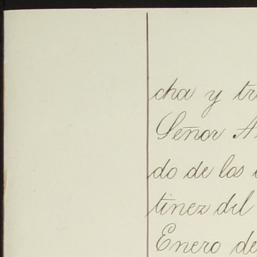 cha y tr
Señor A
do de los
tinez del
Enero de